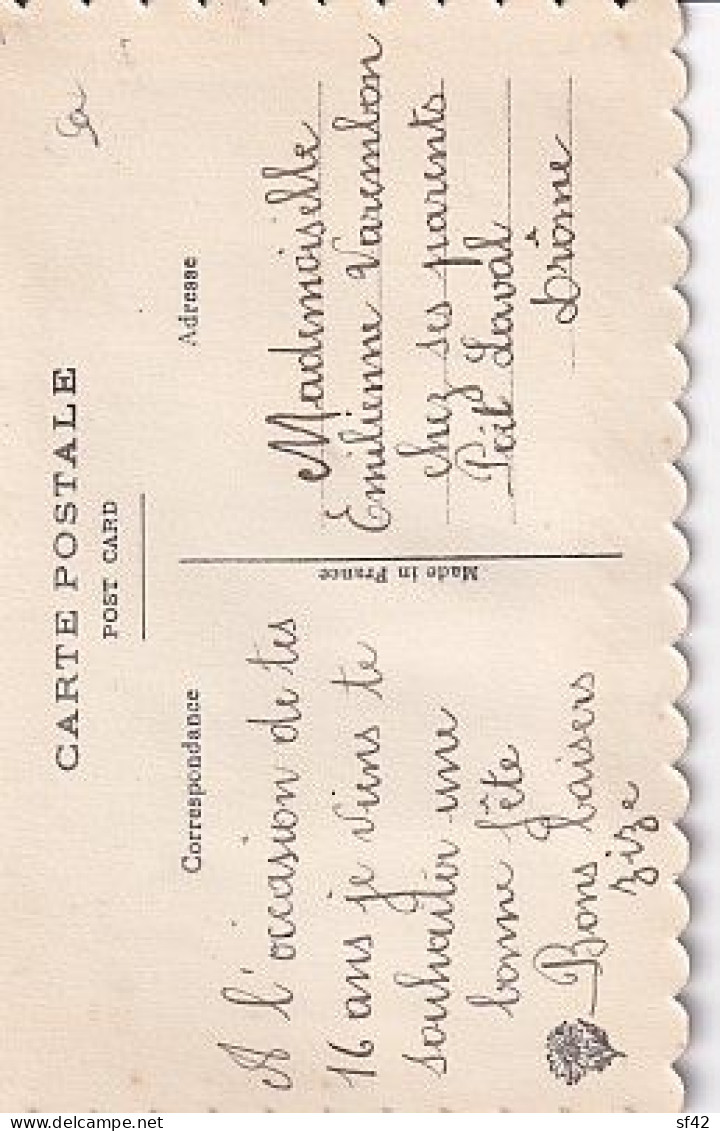 CARTE POSTALE
POST CARD
Correspondance
A l'occasion de tes
16 ans je viens te
souhaiter une
bonne fête
Bons baisers
zize
Made in France
Adresse
Mademoiselle
Emilienne Varembon
chez ses parents
Petit Laval
Drôme
sf42